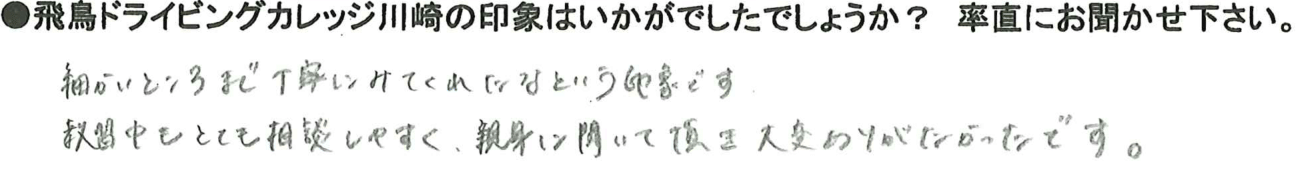 ●飛鳥ドライビングカレッジ川崎の印象はいかがでしたでしょうか？ 率直にお聞かせ下さい。
細かいところまで丁寧にみてくれたなという印象です
教習中もとても相談しやすく、親身に聞いて頂き大変ありがたかったです。